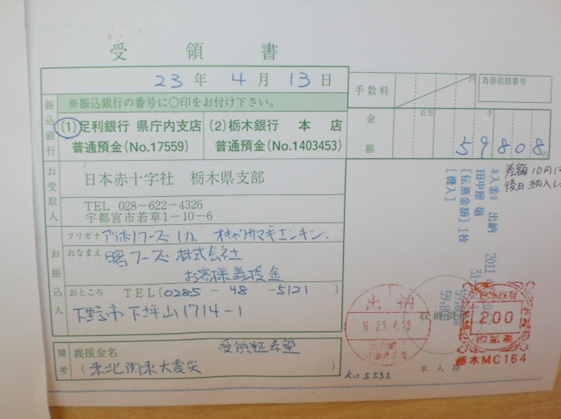 受領書
23年 4月 13日
手数料
為替取扱番号
振込銀行
※振込銀行の番号に○印をお付け下さい。
(1)足利銀行 県庁内支店
普通預金(No.17559)
(2)栃木銀行 本店
普通預金(No.1403453)
金額
百万
千
円
59808
お受取人
日本赤十字社 栃木県支部
TEL 028-622-4326
宇都宮市若草1-10-6
差額10月
後日納入し
お振込人
フリガナ
おなまえ
曙フーズ株式会社
お客様義援金
おところ TEL(0285-48-5121)
下野市下坪山1714-1
*入金* 出納
[伝票金額] 1枚
[機入]
2011
出納
H.23.4.13
収納
200
栃木MC164
備考
義援金名
受領証希望
(東北関東大震災
本人